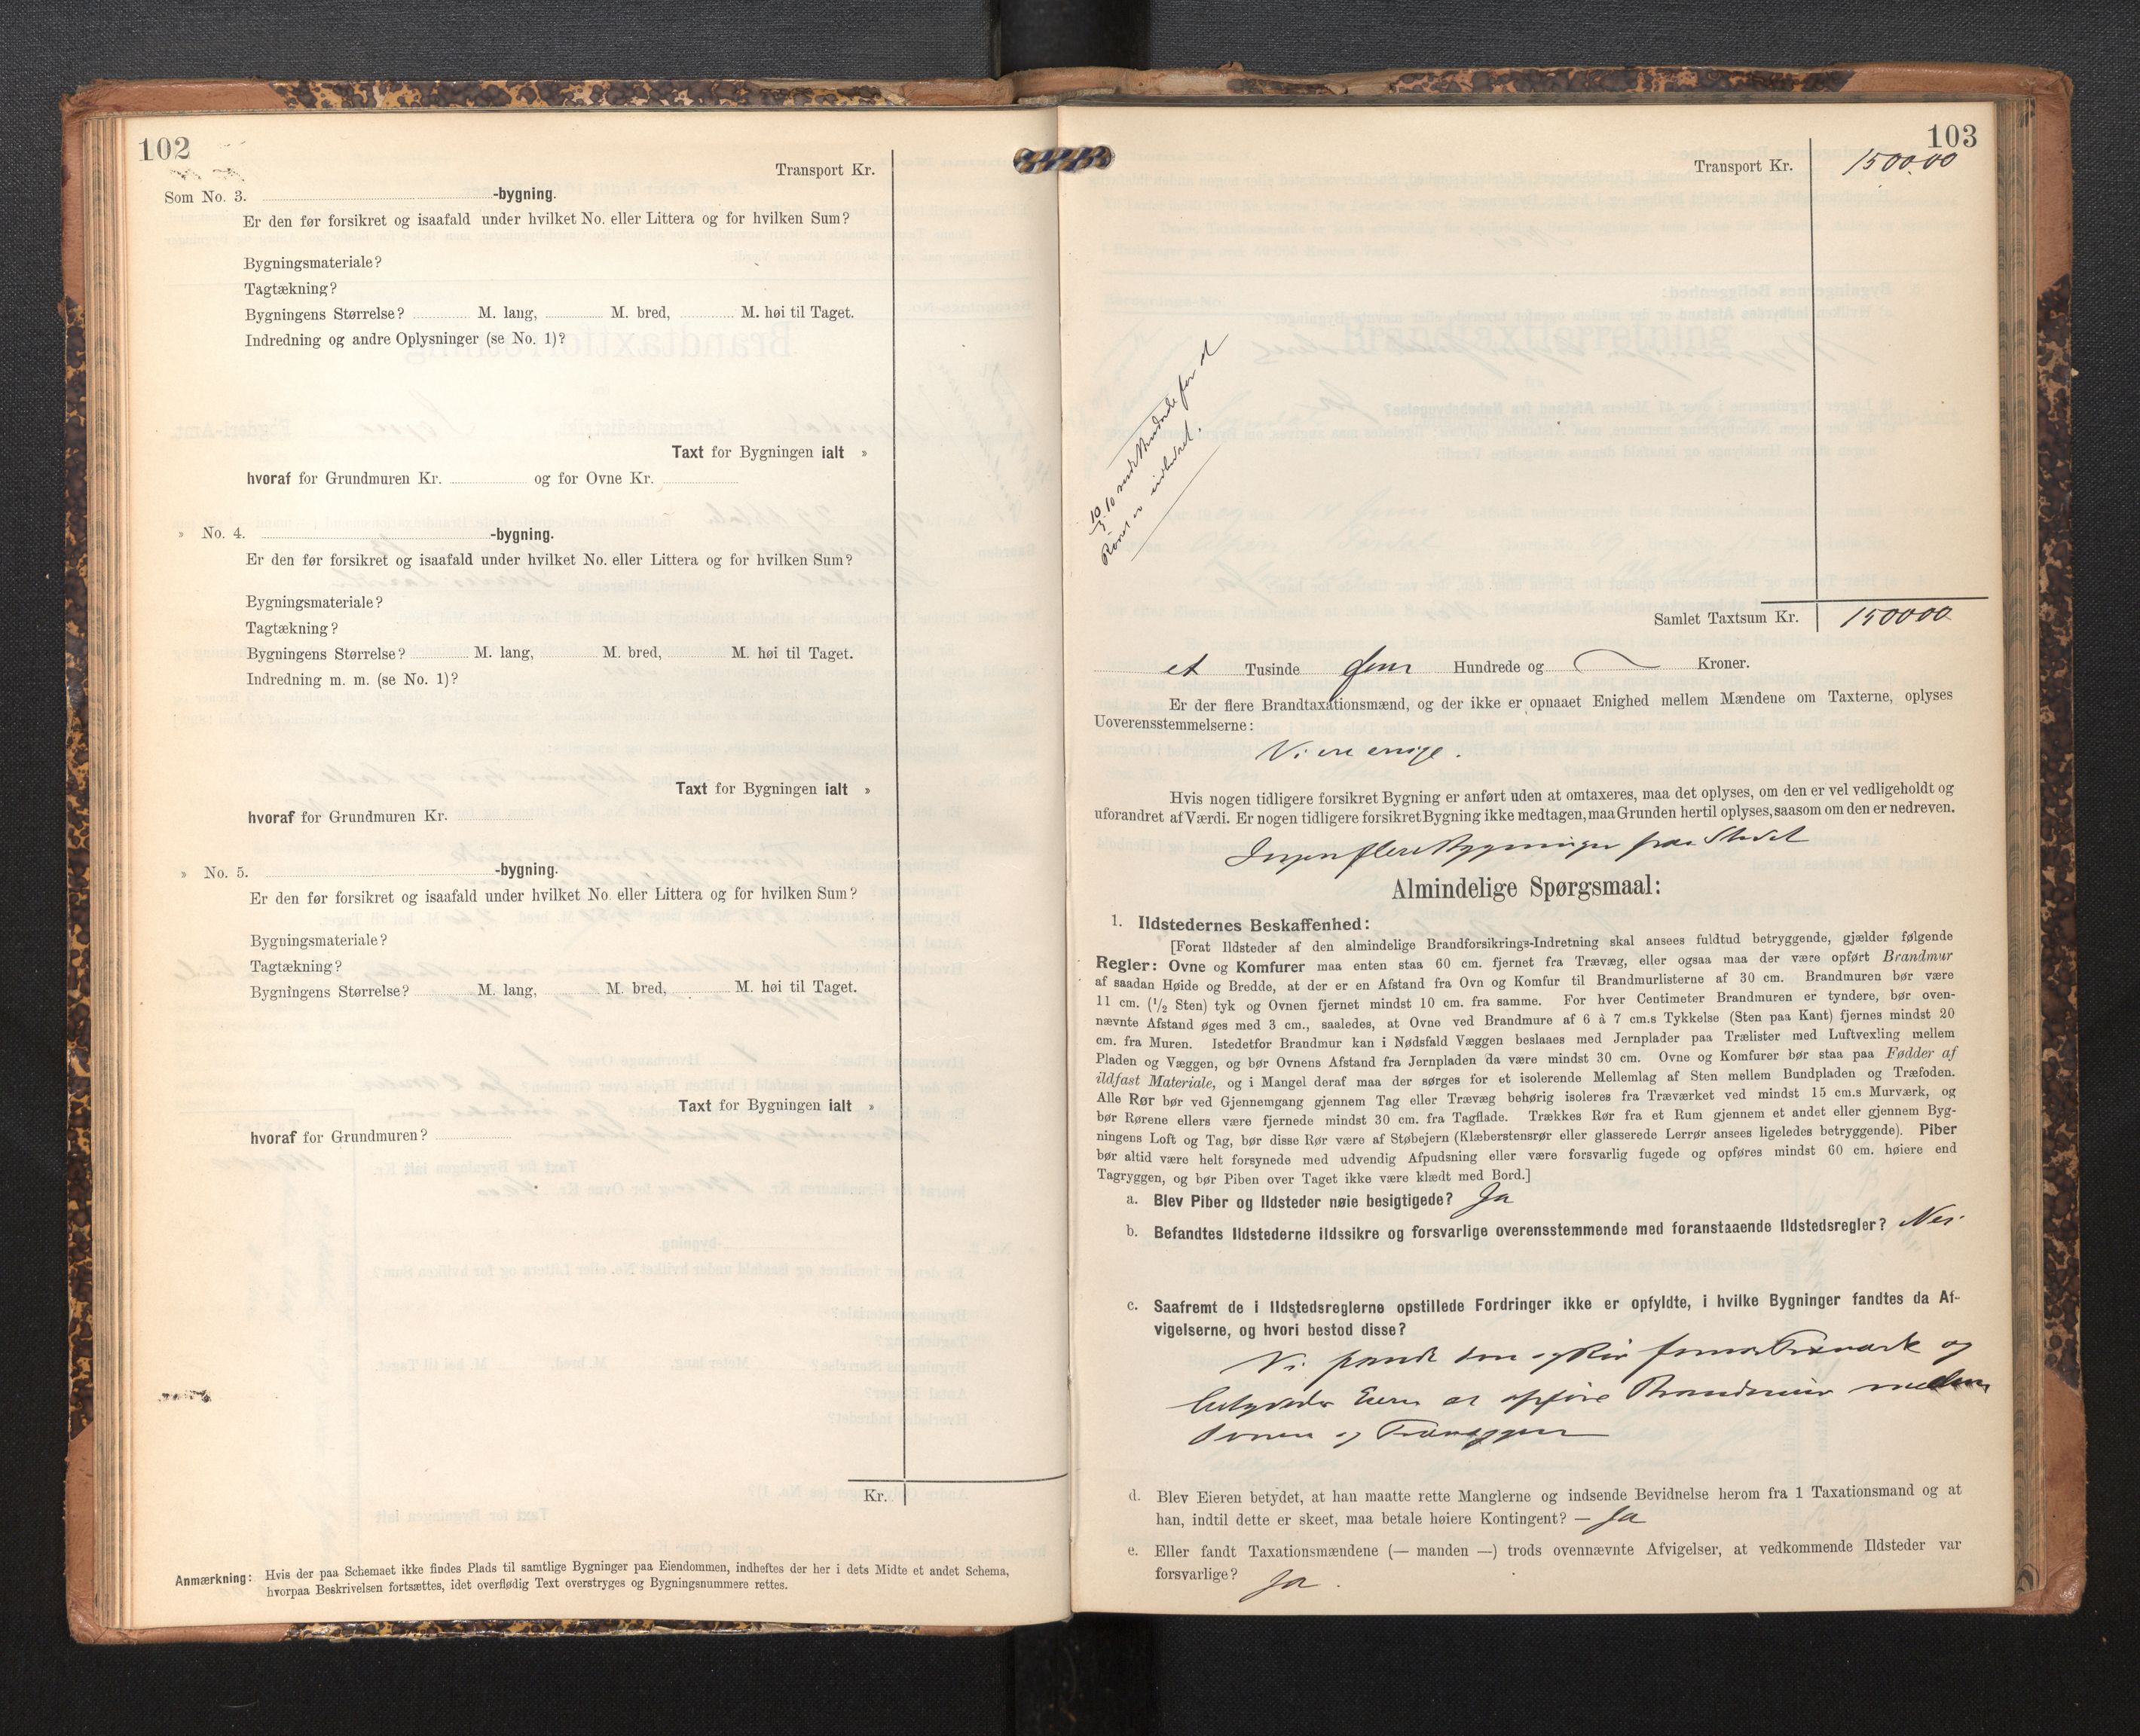 102
Transport Kr.
Som No. 3. -bygning.
Er den før forsikret og isaafald under hvilket No. eller Littera og for hvilken Sum?
Bygningsmateriale?
Tagtækning?
Bygningens Størrelse? M. lang, M. bred, M. høi til Taget.
Indredning og andre Oplysninger (se No. 1)?
Taxt for Bygningen ialt »
hvoraf for Grundmuren Kr. og for Ovne Kr.
» No. 4. -bygning.
Er den før forsikret og isaafald under hvilket No. eller Littera og for hvilken Sum?
Bygningsmateriale?
Tagtækning?
Bygningens Størrelse? M. lang, M. bred, M. høi til Taget.
Indredning m. m. (se No. 1)?
Taxt for Bygningen ialt »
hvoraf for Grundmuren Kr.
» No. 5. -bygning.
Er den før forsikret og isaafald under hvilket No. eller Littera og for hvilken Sum?
Bygningsmateriale?
Tagtækning?
Bygningens Størrelse? M. lang, M. bred, M. høi til Taget.
Taxt for Bygningen ialt »
hvoraf for Grundmuren?
Kr.
Anmærkning: Hvis der paa Schemaet ikke findes Plads til samtlige Bygninger paa Eiendommen, indheftes der her i dets Midte et andet Schema,
hvorpaa Beskrivelsen fortsættes, idet overflødig Text overstryges og Bygningsnummere rettes.
103
Transport Kr. 1500.00
10/3 10 for at
Røret er
Samlet Taxtsum Kr. 1500 00
et Tusinde fem Hundrede og Kroner.
Er der flere Brandtaxationsmænd, og der ikke er opnaaet Enighed mellem Mændene om Taxterne, oplyses
Uoverensstemmelserne:
Vi ere enige.
Hvis nogen tidligere forsikret Bygning er anført uden at omtaxeres, maa det oplyses, om den er vel vedligeholdt og
uforandret af Værdi. Er nogen tidligere forsikret Bygning ikke medtagen, maa Grunden hertil oplyses, saasom om den er nedreven.
Ingen flere Bygninger paa Stedet
Almindelige Spørgsmaal:
1. Ildstedernes Beskaffenhed:
[Forat Ildsteder af den almindelige Brandforsikrings-Indretning skal ansees fuldtud betryggende, gjælder følgende
Regler: Ovne og Komfurer maa enten staa 60 cm. fjernet fra Trævæg, eller ogsaa maa der være opført Brandmur
af saadan Høide og Bredde, at der er en Afstand fra Ovn og Komfur til Brandmurlisterne af 30 cm. Brandmuren bør være
11 cm. (1/2 Sten) tyk og Ovnen fjernet mindst 10 cm. fra samme. For hver Centimeter Brandmuren er tyndere, bør oven-
nævnte Afstand øges med 3 cm., saaledes, at Ovne ved Brandmure af 6 à 7 cm.s Tykkelse (Sten paa Kant) fjernes mindst 20
cm. fra Muren. Istedetfor Brandmur kan i Nødsfald Væggen beslaaes med Jernplader paa Trælister med Luftvexling mellem
Pladen og Væggen, og bør Ovnens Afstand fra Jernpladen da være mindst 30 cm. Ovne og Komfurer bør staa paa Fødder af
ildfast Materiale, og i Mangel deraf maa der sørges for et isolerende Mellemlag af Sten mellem Bundpladen og Træfoden.
Alle Rør bør ved Gjennemgang gjennem Tag eller Trævæg behørig isoleres fra Træværket ved mindst 15 cm.s Murværk, og
bør Rørene ellers være fjernede mindst 30 cm. fra Tagflade. Trækkes Rør fra et Rum gjennem et andet eller gjennem Byg-
ningens Loft og Tag, bør disse Rør være af Støbejern (Klæberstensrør eller glasserede Lerrør ansees ligeledes betryggende). Piber
bør altid være helt forsynede med udvendig Afpudsning eller være forsvarlig fugede og opføres mindst 60 cm. høiere end
Tagryggen, og bør Piben over Taget ikke være klædt med Bord.]
a. Blev Piber og Ildsteder nøie besigtigede? Ja
b. Befandtes Ildstederne ildssikre og forsvarlige overensstemmende med foranstaaende Ildstedsregler? Nei
c. Saafremt de i Ildstedsreglerne opstillede Fordringer ikke er opfyldte, i hvilke Bygninger fandtes da Af-
vigelserne, og hvori bestod disse?
Vi og Rør Træværk og
Eieren at opføre Brandmur mellem
Ovnen og Trævæggen
d. Blev Eieren betydet, at han maatte rette Manglerne og indsende Bevidnelse herom fra 1 Taxationsmand og at
han, indtil dette er skeet, maa betale høiere Kontingent? — Ja
e. Eller fandt Taxationsmændene (— manden —) trods ovennævnte Afvigelser, at vedkommende Ildsteder var
forsvarlige? Ja.